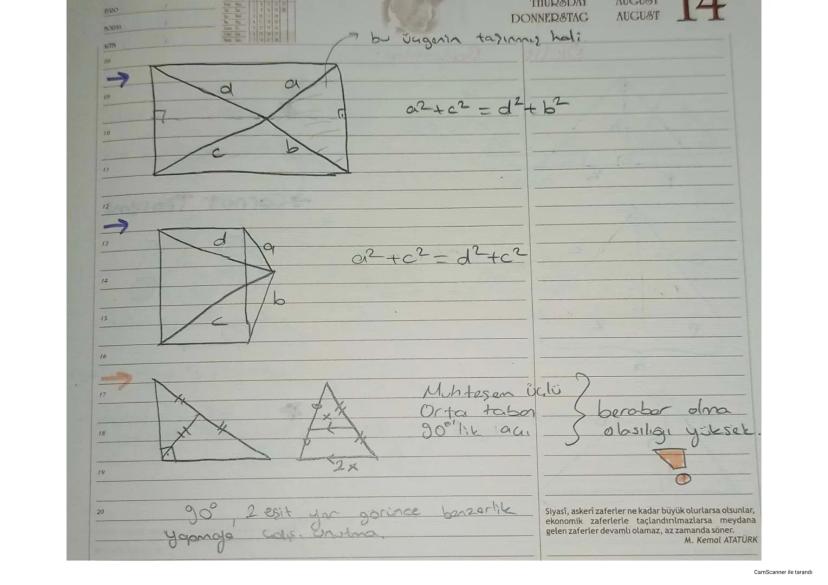 THURSDAY AUGUST
DONNERSTAG AUGUST 14
bu üçgenin taşınmış hali
d a
c b
a² + c² = d² + b²
d a
c b
a² + c² = d² + c²
Muhteşem üçlü
Orta taban
90°'lik açı
beraber olma
olasılığı yüksek.
x
2x
90°, 2 eşit yer görünce benzerlik
yapmaya çalış. Unutma.
Siyasî, askerî zaferler ne kadar büyük olurlarsa olsunlar,
ekonomik zaferlerle taçlandırılmazlarsa meydana
gelen zaferler devamlı olamaz, az zamanda söner.
M. Kemal ATATÜRK
09
10
11
12
13
14
15
16
17
18
19
20
CamScanner ile tarandı